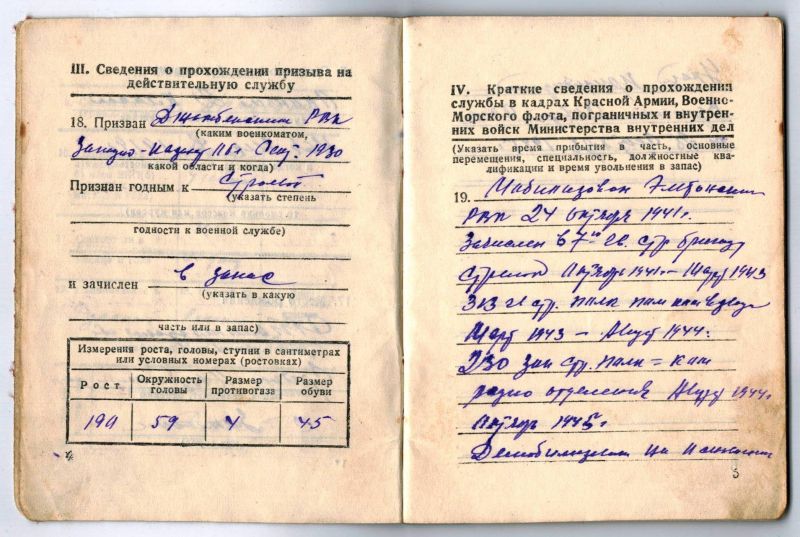 III. Сведения о прохождении призыва на
действительную службу
18. Призван РВК
(каким военкоматом,
1930
какой области и когда)
Признан годным к строевой
(указать степень
годности к военной службе)
и зачислен в запас
(указать в какую
часть или в запас)
Измерения роста, головы, ступни в сантиметрах
или условных номерах (ростовках)
Рост
Окружность
головы
Размер
противогаза
Размер
обуви
190 59 4 45
IV. Краткие сведения о прохождении
службы в кадрах Красной Армии, Военно-
Морского флота, пограничных и внутрен-
них войск Министерства внутренних дел
(Указать время прибытия в часть, основные
перемещения, специальность, должностные ква-
лификации и время увольнения в запас)
19. Мобилизован
РВК 24 октября 1941 г.
Зачислен в 7ю стр бригаду
1941 г – Март 1943
стр. полк пом ком взвода
Март 1943 – Август 1944.
230 Зап стр. полк = ком
радио отделения Август 1944.
1945 г
Демобилизован на
5